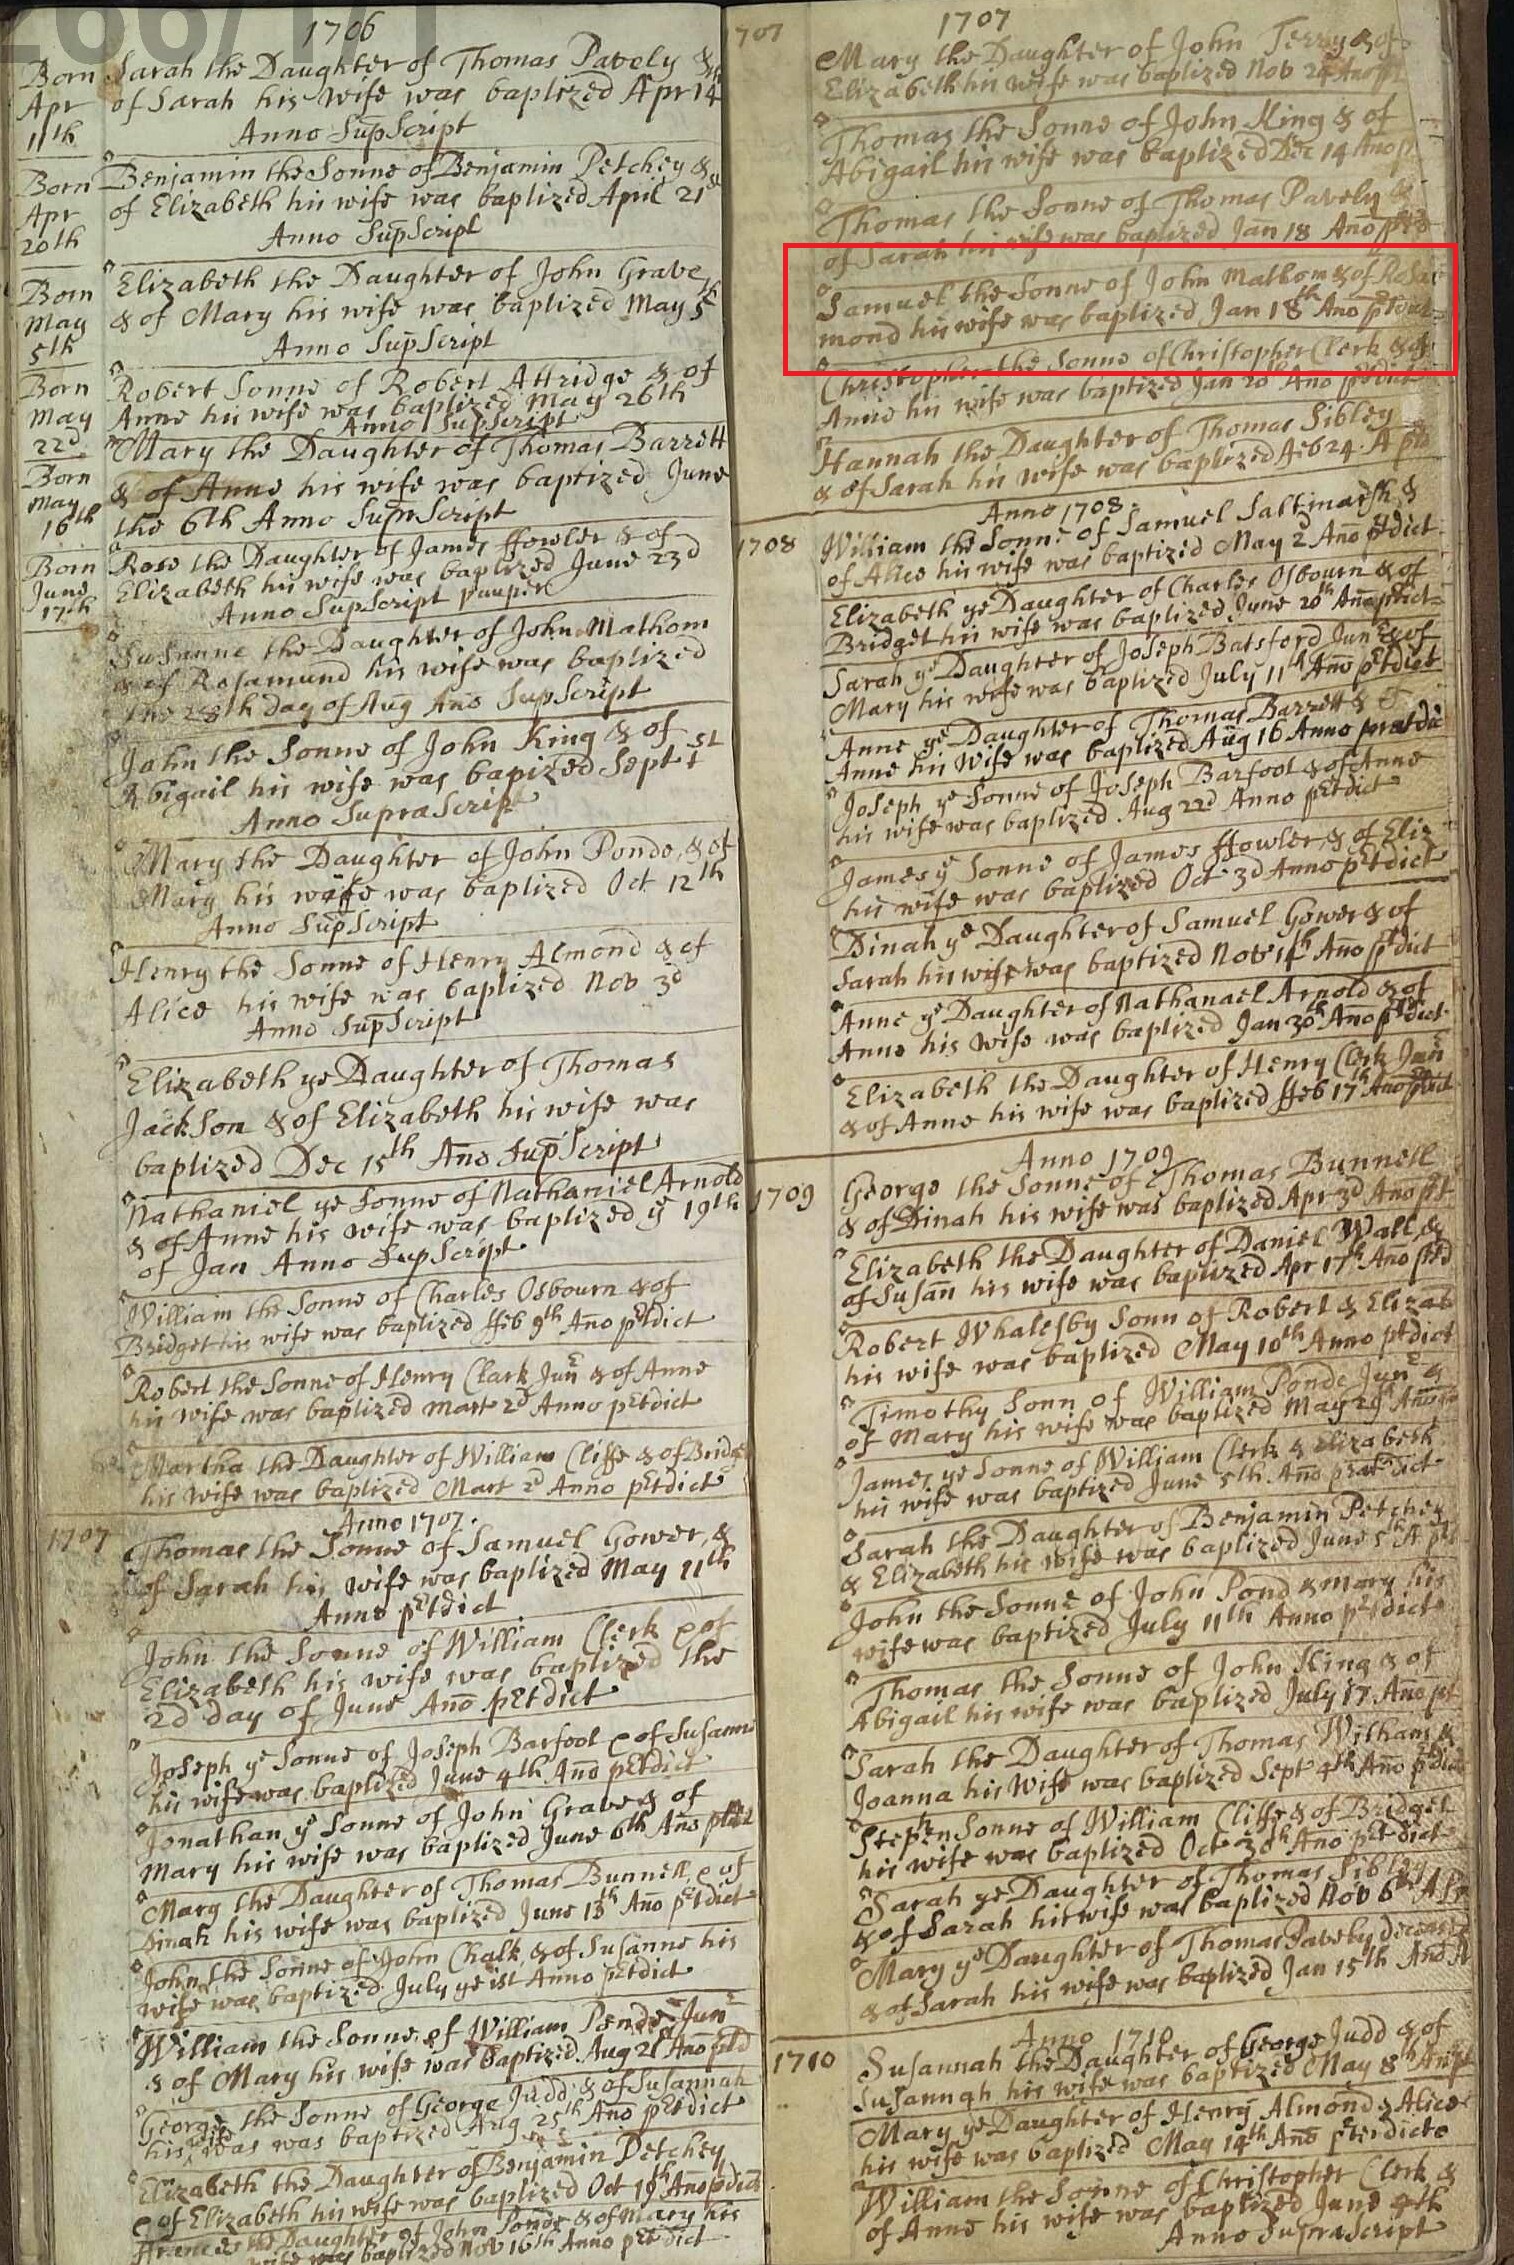 1706
Born Sarah the Daughter of Thomas Pavely &
Apr of Sarah his wife was baptized Apr 14
11th Anno SupScript
Born Benjamin the Sonne of Benjamin Petchey &
Apr of Elizabeth his wife was baptized April 21
20th Anno SupScript
Born Elizabeth the Daughter of John Grave
May & of Mary his wife was baptized May 5
5th Anno SupScript
Born Robert Sonne of Robert Attridge & of
May Anne his wife was baptized May 26th
22d Anno SupScript
Born Mary the Daughter of Thomas Barrett
May & of Anne his wife was baptized June
16th the 6th Anno SuprScript
Born Rose the Daughter of James ffowler & of
June Elizabeth his wife was baptized June 23d
17th Anno SupScript pauper
Susanne the Daughter of John Mathom
& of Rosamund his wife was baptized
the 28th day of Aug Ano SupScript
John the Sonne of John King & of
Abigail his wife was bapized Sept 1st
Anno SupraScript
Mary the Daughter of John Ponde, & of
Mary his wife was baptized Oct 12th
Anno SupScript
Henry the Sonne of Henry Almond & of
Alice his wife was baptized Nov 3d
Anno SupScript
Elizabeth ye Daughter of Thomas
Jackson & of Elizabeth his wife was
baptized Dec 15th Ano SupScript
Nathaniel ye Sonne of Nathaniel Arnold
& of Anne his wife was baptized ye 19th
of Jan Anno SupScript
William the Sonne of Charles Osbourn & of
Bridget his wife was baptized ffeb 9th Ano prtdict
Robert the Sonne of Henry Clark Junr & of Anne
his wife was baptized Mart 2d Anno prtdict
Martha the Daughter of William Cliffe & of Bridg
his wife was baptized Mart 2d Anno prtdict
Anno 1707.
1707 Thomas the Sonne of Samuel Gower, &
of Sarah his wife was baptized May 11th
Anno prtdict
John the Sonne of William Clerk & of
Elizabeth his wife was baptized the
2d day of June Ano prtdict
Joseph ye Sonne of Joseph Barfoot & of Susanne
his wife was baptized June 4th Ano prtdict
Jonathan ye Sonne of John Grave & of
Mary his wife was baptized June 6th Ano
Mary the Daughter of Thomas Bunnell, & of
Dinah his wife was baptized June 13th Ano prtdict
John the Sonne of John Chalk, & of Susanne his
wife was baptized July ye 1st Anno prtdict
William the Sonne of William Ponde Junr
& of Mary his wife was baptized Aug Ano
George the Sonne of George Judd, & of Susannah
his was was baptized Aug 25th Ano prtdict
Elizabeth the Daughter of Benjamin Petchey
& of Elizabeth his wife was baptized Oct 19th Ano prdict
the Daughter of John Ponde & of Mary his
wife was baptized Nov 16th Anno prtdict
1707
707 Mary the Daughter of John Terry & of
Elizabeth his wife was baptized Nov 24
Thomas the Sonne of John King & of
Abigail his wife was baptized Dec 14 Ano
Thomas the Sonne of Thomas Pavely &
of Sarah his wife was baptized Jan 18 Ano
Samuel the Sonne of John Mathom & of Rosa
mond his wife was baptized Jan 18th Ano
Christopher the Sonne of Christopher Clerk & of
Anne his wife was baptized Jan 20th Ano prtdict
Hannah the Daughter of Thomas Sibley
& of Sarah his wife was baptized ffeb 24 A
Anno 1708.
1708 William the Sonne of Samuel Saltmarsh &
of Alice his wife was baptized May 2 Ano prtdict
Elizabeth ye Daughter of Charles Osbourn & of
Bridget his wife was baptized June 20th Ano prdict
Sarah ye Daughter of Joseph Batsford Junr & of
Mary his wife was baptized July 11th Ano prtdict
Anne ye Daughter of Thomas Barrett &
Anne his Wife was baptized Aug 16 Anno
Joseph ye Sonne of Joseph Barfoot & of Anne
his wife was baptized Aug 22d Anno prtdict
James ye Sonne of James ffowler, & of Eliz
his wife was baptized Oct 3d Anno prtdict
Dinah ye Daughter of Samuel Gower & of
Sarah his wife was baptized Nov 14th Ano prtdict
Anne ye Daughter of Nathanael Arnold & of
Anne his Wife was baptized Jan 30th Ano prtdict
Elizabeth the Daughter of Henry Clerk Junr
& of Anne his wife was baptized ffeb 17th Ano prdict
Anno 1709
1709 George the Sonne of Thomas Bunnell
& of Dinah his wife was baptized Apr 3d Ano
Elizabeth the Daughter of Daniel Wall, &
of Susan his wife was baptized Apr 17th Ano
Robert Whalesby Sonn of Robert & Elizab
his wife was baptized May 10th Anno prtdict
Timothy Sonn of William Ponde Junr &
of Mary his wife was baptized May 29th Ano
James ye Sonne of William Clerk & Elizabeth
his wife was baptized June 5th Ano
Sarah the Daughter of Benjamin Petchey
& Elizabeth his wife was baptized June 5th A
John the Sonne of John Pond & Mary his
wife was baptized July 11th Anno prtdict
Thomas the Sonne of John King & of
Abigail his wife was baptized July 17 Ano
Sarah the Daughter of Thomas Witham &
Joanna his Wife was baptized Sept 4th Ano
Stephen Sonne of William Cliffe & of Bridget
his wife was baptized Oct 30th Ano prtdict
Sarah ye Daughter of Thomas Sibley
& of Sarah his wife was baptized Nov 6th A
Mary ye Daughter of Thomas Pavely
& of Sarah his wife was baptized Jan 15th Ano
Anno 1710
1710 Susannah the Daughter of George Judd & of
Susannah his wife was baptized May 8th
Mary ye Daughter of Henry Almond & Alice
his wife was baptized May 14th Ano
William the Sonne of Christopher Clerk &
of Anne his wife was baptized June 4th
Anno SupraScript